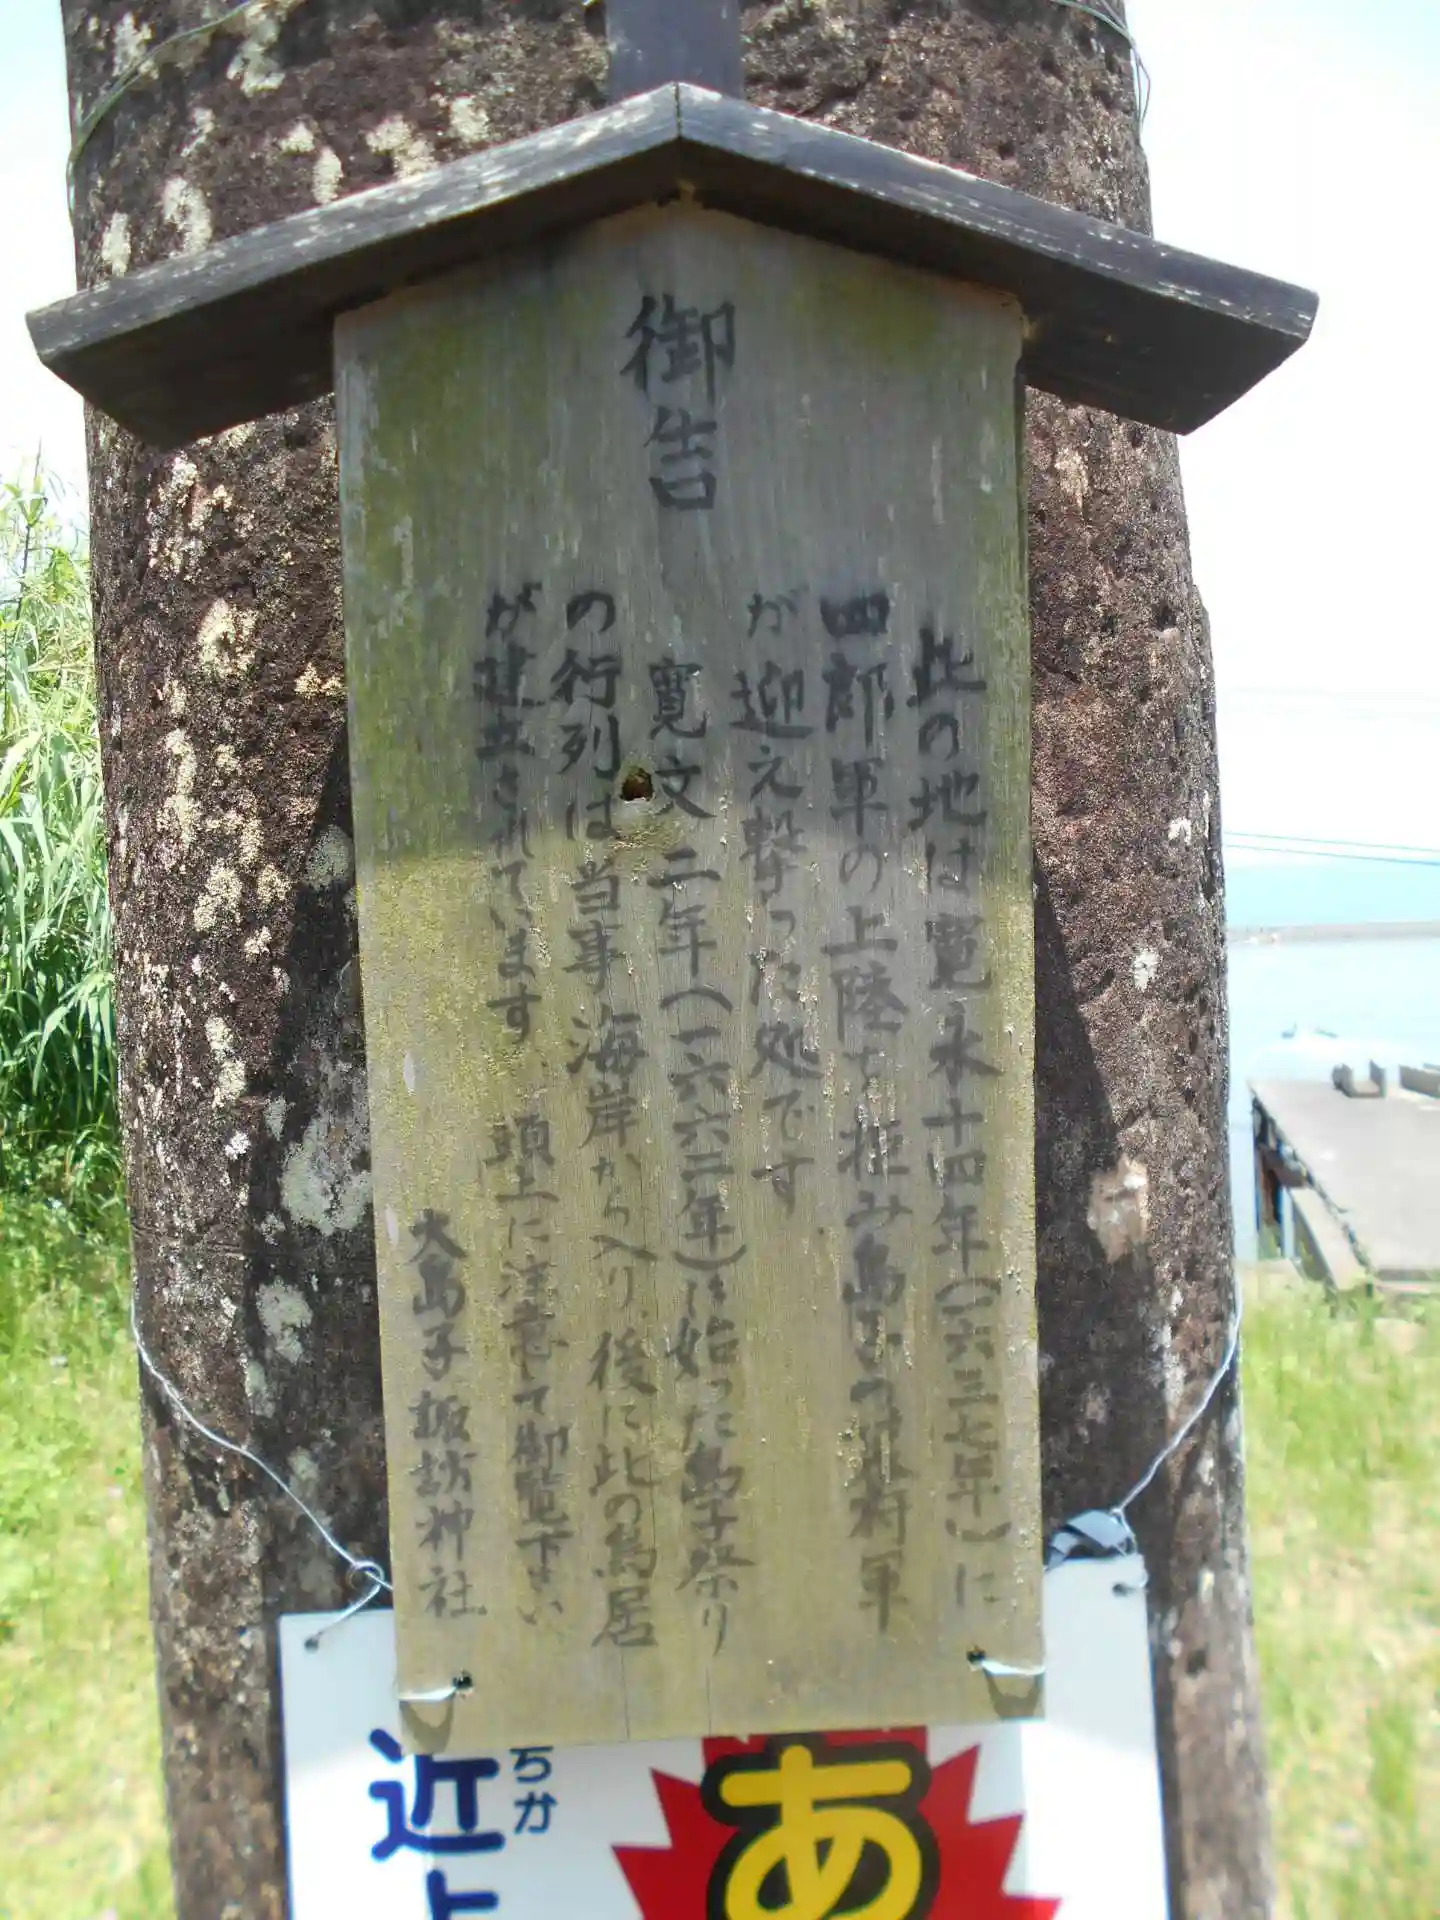 御告
此の地は寛永十四年(一六三七年)に
四郎軍の上陸を拒み島子の武将軍
が迎え撃った処です
寛文二年(一六六二年)に始った島子祭り
の行列は当事海岸から入り、後に此の鳥居
が建立されています、頭上に注意して御覧下さい
大島子諏訪神社
あ
近
ちか